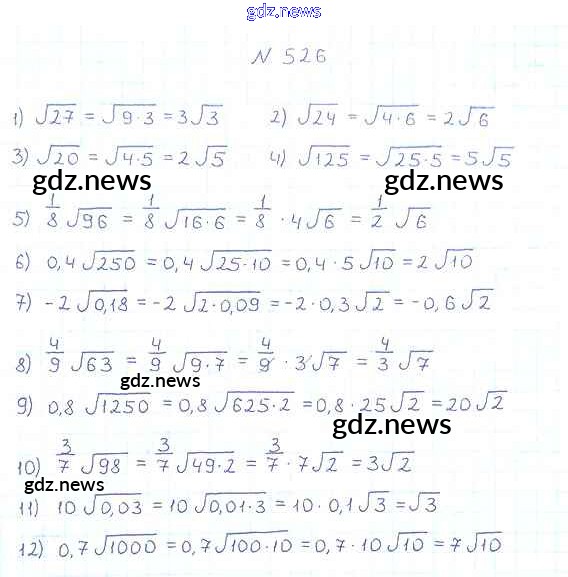 gdz.news
N 526
1) √27 = √9·3 = 3√3 2) √24 = √4·6 = 2√6
3) √20 = √4·5 = 2√5 4) √125 = √25·5 = 5√5
gdz.news gdz.news
5) 1/8 √96 = 1/8 √16·6 = 1/8 · 4√6 = 1/2 √6
6) 0,4√250 = 0,4√25·10 = 0,4·5√10 = 2√10
7) -2√0,18 = -2√2·0,09 = -2·0,3√2 = -0,6√2
8) 4/9 √63 = 4/9 √9·7 = 4/9 · 3√7 = 4/3 √7
gdz.news
9) 0,8√1250 = 0,8√625·2 = 0,8·25√2 = 20√2
gdz.news
10) 3/7 √98 = 3/7 √49·2 = 3/7 · 7√2 = 3√2
11) 10√0,03 = 10√0,01·3 = 10·0,1√3 = √3
12) 0,7√1000 = 0,7√100·10 = 0,7·10√10 = 7√10